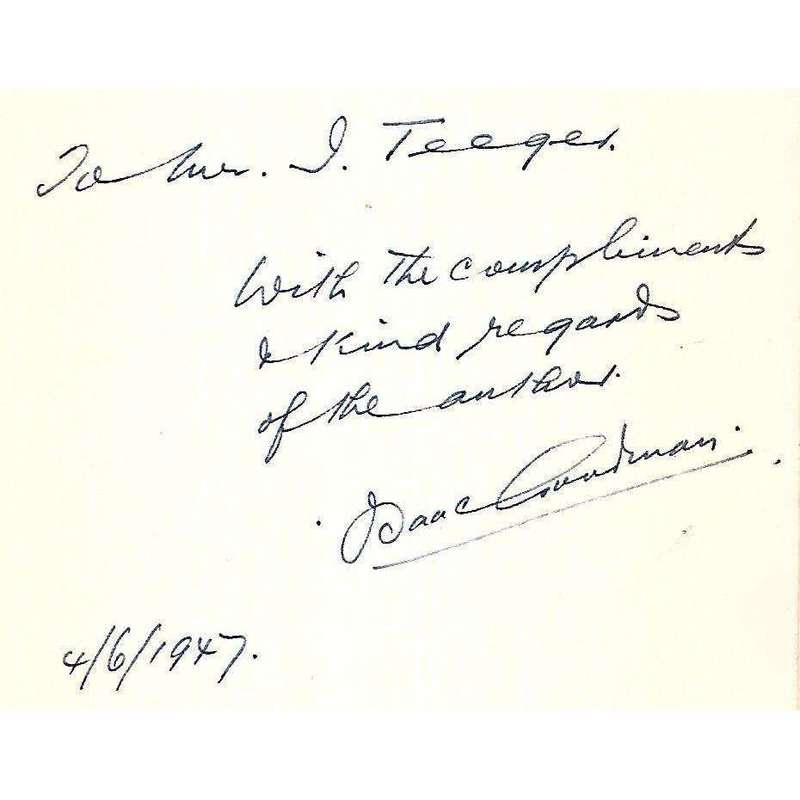 To Mr. I. Teeger.
With the compliments
& kind regards
of the author.
Isaac Goodman.
4/6/1947.